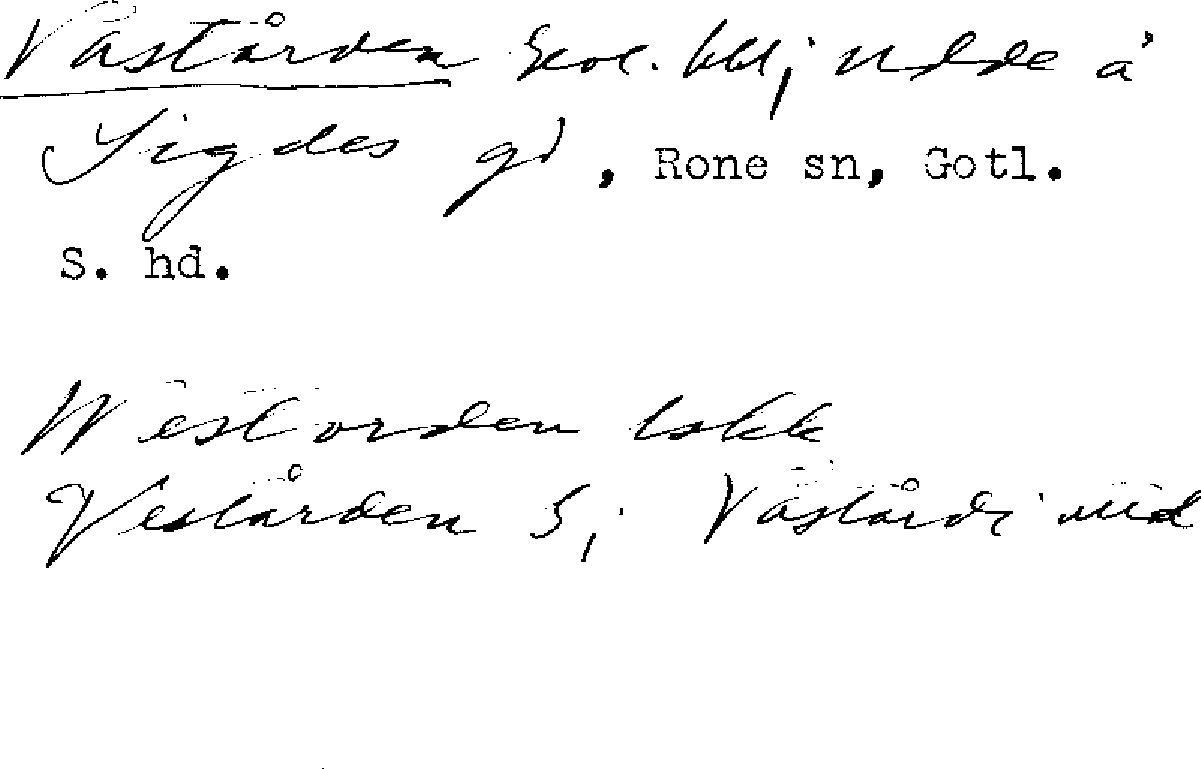 Västården Ekol. bld; udde å
Sigdes gd, Rone sn, Gotl.
S. hd.
Westorden Lskk
Vestården 5; Västårdi vid